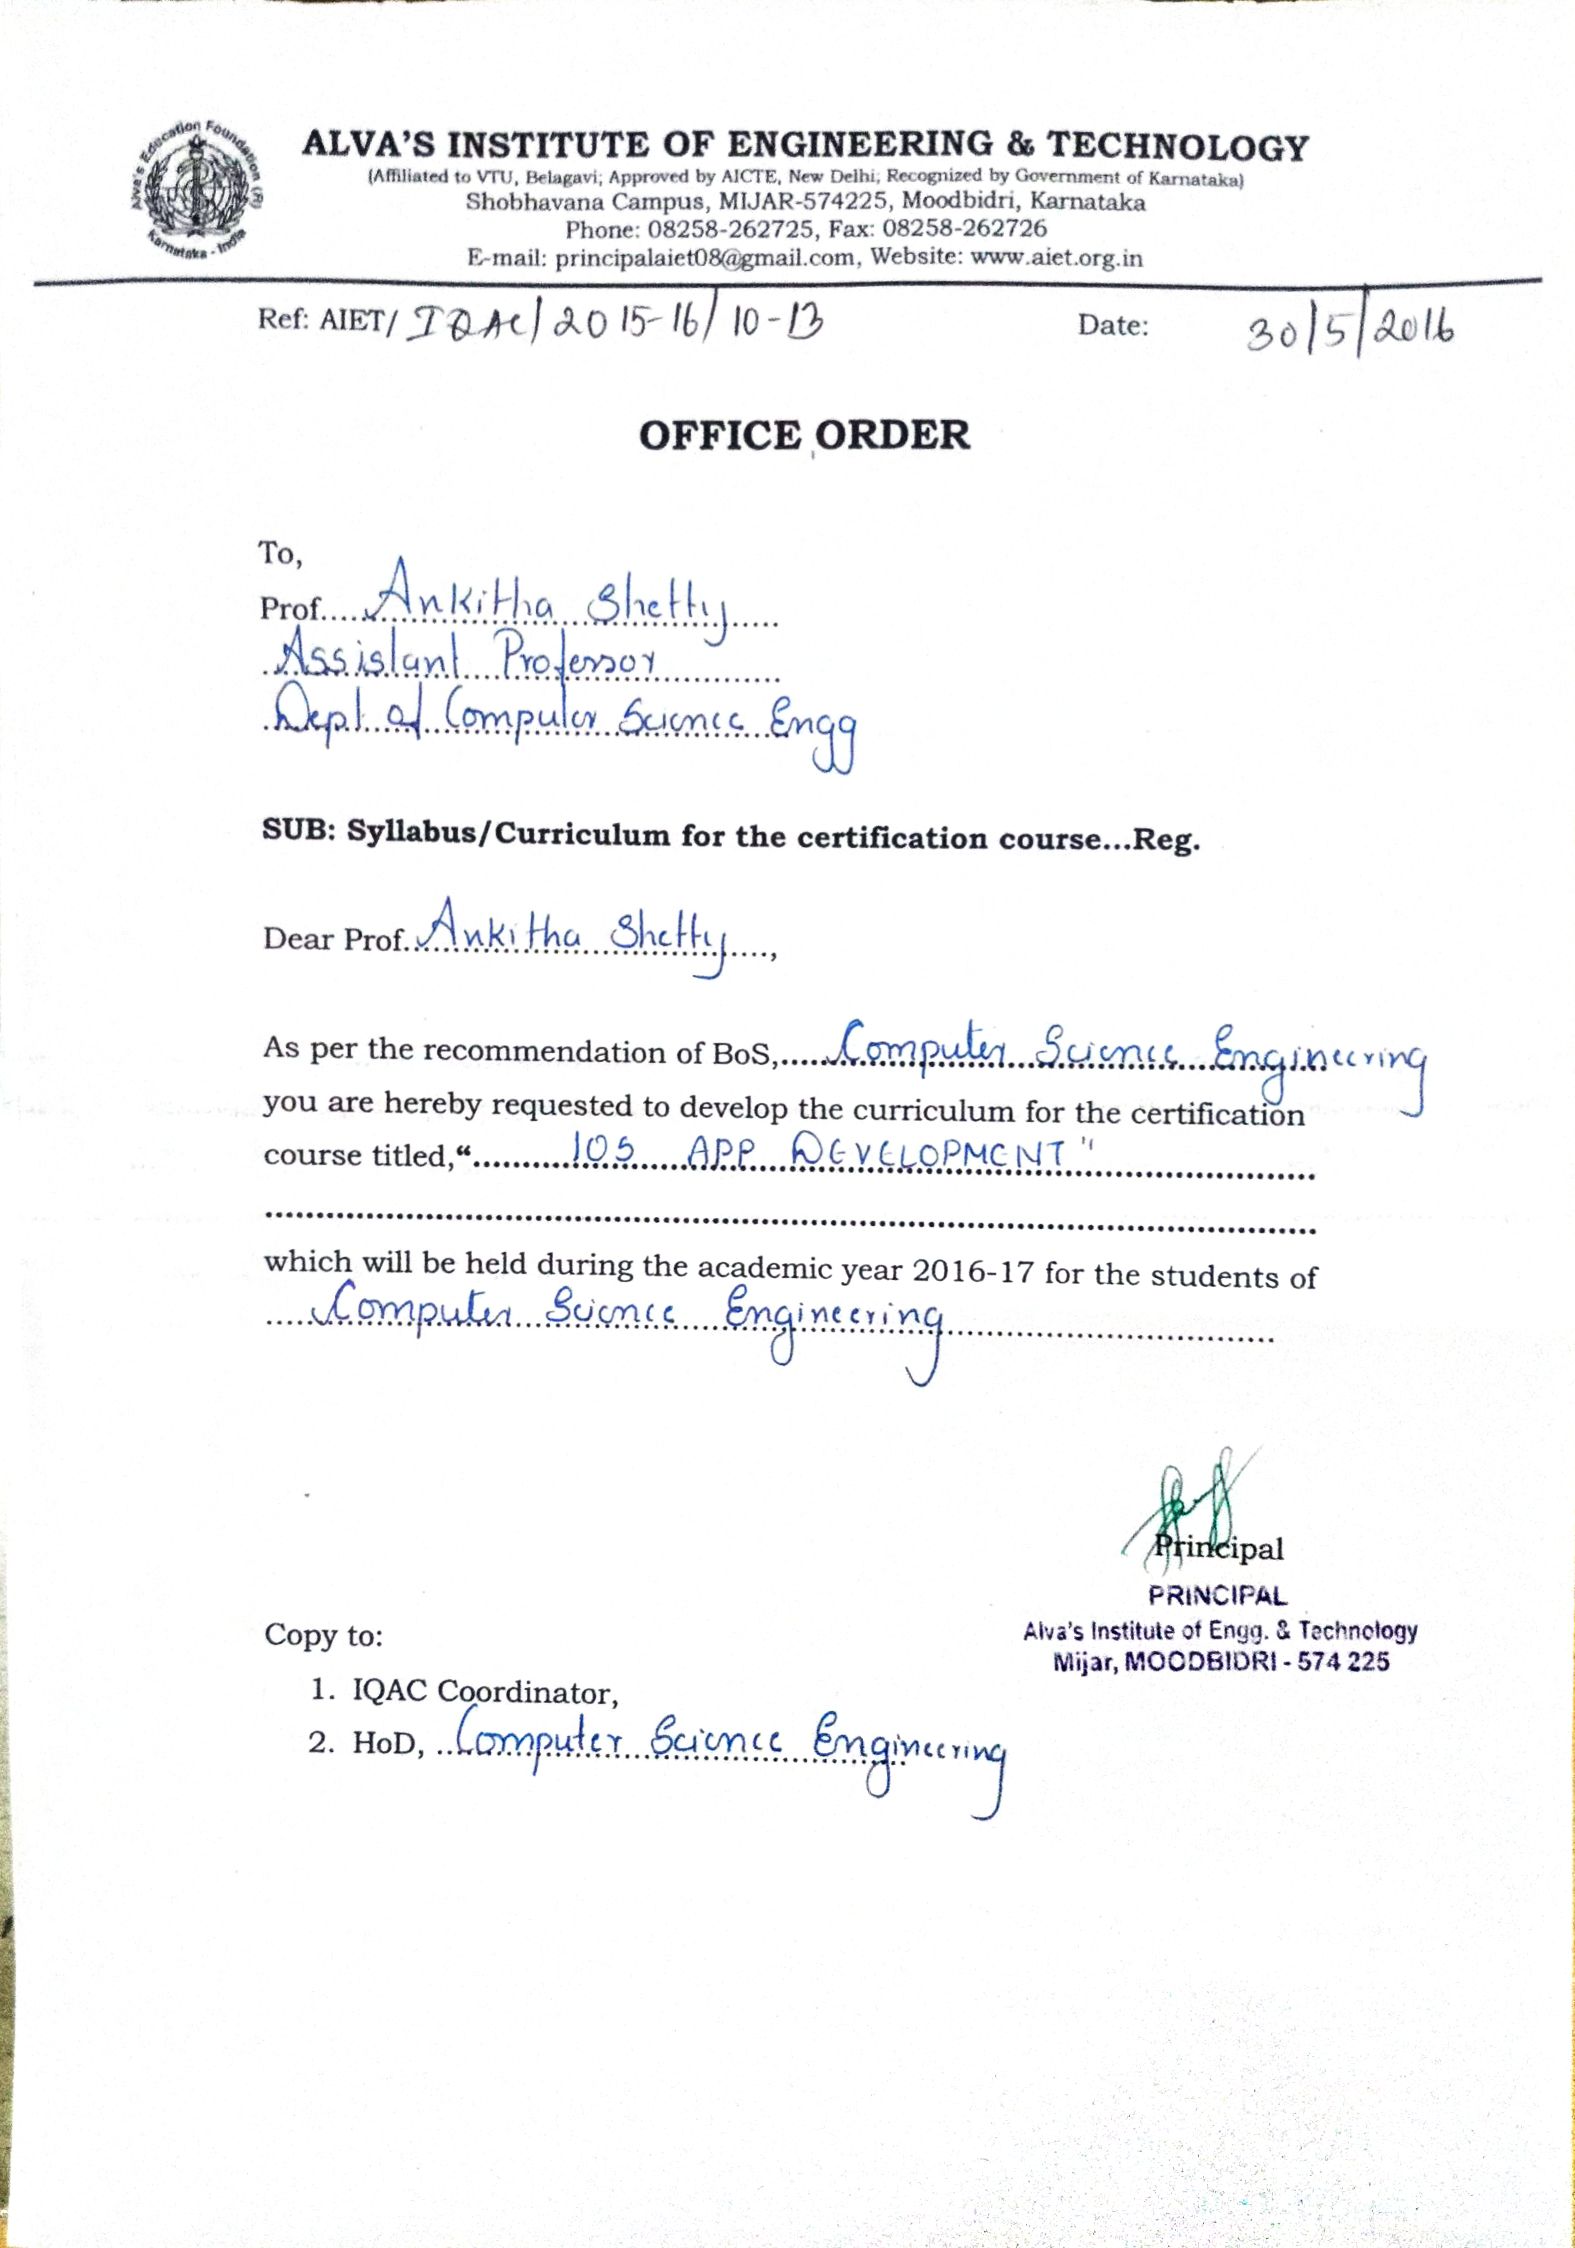 Alva's Education Foundation (R)
Karnataka - India
ALVA'S INSTITUTE OF ENGINEERING & TECHNOLOGY
(Affiliated to VTU, Belagavi; Approved by AICTE, New Delhi; Recognized by Government of Karnataka)
Shobhavana Campus, MIJAR-574225, Moodbidri, Karnataka
Phone: 08258-262725, Fax: 08258-262726
E-mail: principalaiet08@gmail.com, Website: www.aiet.org.in
Ref: AIET/ IQAC/2015-16/10-13 Date: 30/5/2016
OFFICE ORDER
To,
Prof.....Ankitha Shetty.....
Assistant Professor
Dept of Computer Science Engg
SUB: Syllabus/Curriculum for the certification course...Reg.
Dear Prof. Ankitha Shetty....,
As per the recommendation of BoS,.....Computer Science Engineering
you are hereby requested to develop the curriculum for the certification
course titled,“..........IOS APP DEVELOPMENT"
which will be held during the academic year 2016-17 for the students of
....Computer Science Engineering
Principal
PRINCIPAL
Alva's Institute of Engg. & Technology
Mijar, MOODBIDRI - 574 225
Copy to:
1. IQAC Coordinator,
2. HoD, ..Computer Science Engineering